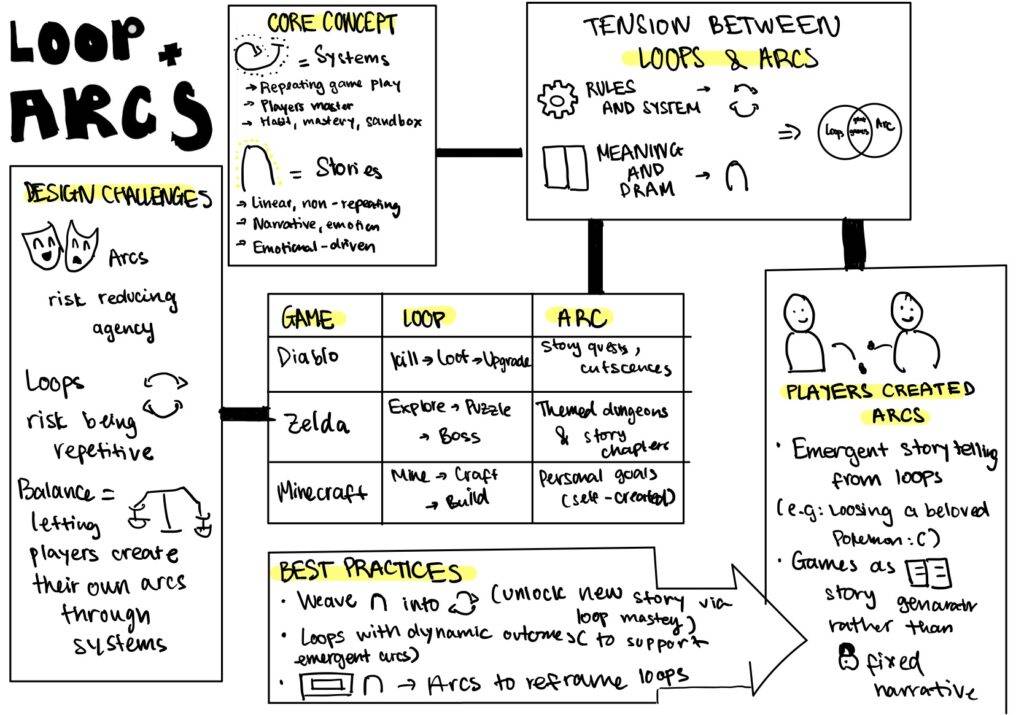 LOOP +
ARCS
CORE CONCEPT
= Systems
→ Repeating game play
→ Players master
→ Habit, mastery, sandbox
= Stories
→ Linear, non-repeating
→ Narrative, emotion
→ Emotional-driven
TENSION BETWEEN
LOOPS & ARCS
RULES
AND SYSTEM →
MEANING
AND
DRAM →
⇒
Loops
games
Arc
DESIGN CHALLENGES
Arcs
risk reducing
agency
Loops
risk being
repetitive
Balance =
letting
players create
their own arcs
through
systems
GAME LOOP ARC
Diablo
Kill → Loot → Upgrade
Story quests,
cutscences
Zelda
Explore → Puzzle
→ Boss
Themed dungeons
& story
chapters
Minecraft
Mine → Craft
→ Build
Personal goals
(self-created)
BEST PRACTICES
• Weave ∩ into (unlock new story via
loop mastey)
• Loops with dynamic outcomes( to support
emergent arcs)
• ∩ → Arcs to reframe loops
PLAYERS CREATED
ARCS
• Emergent story telling
from loops
(e.g: Loosing a beloved
Pokemon :C)
• Games as
story generator
rather than
fixed
narrative